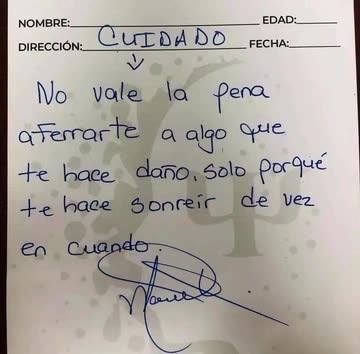 NOMBRE: EDAD:
DIRECCIÓN: CUIDADO FECHA:
No vale la pena
aferrarte a algo que
te hace daño, solo porqué
te hace sonreir de vez
en cuando.